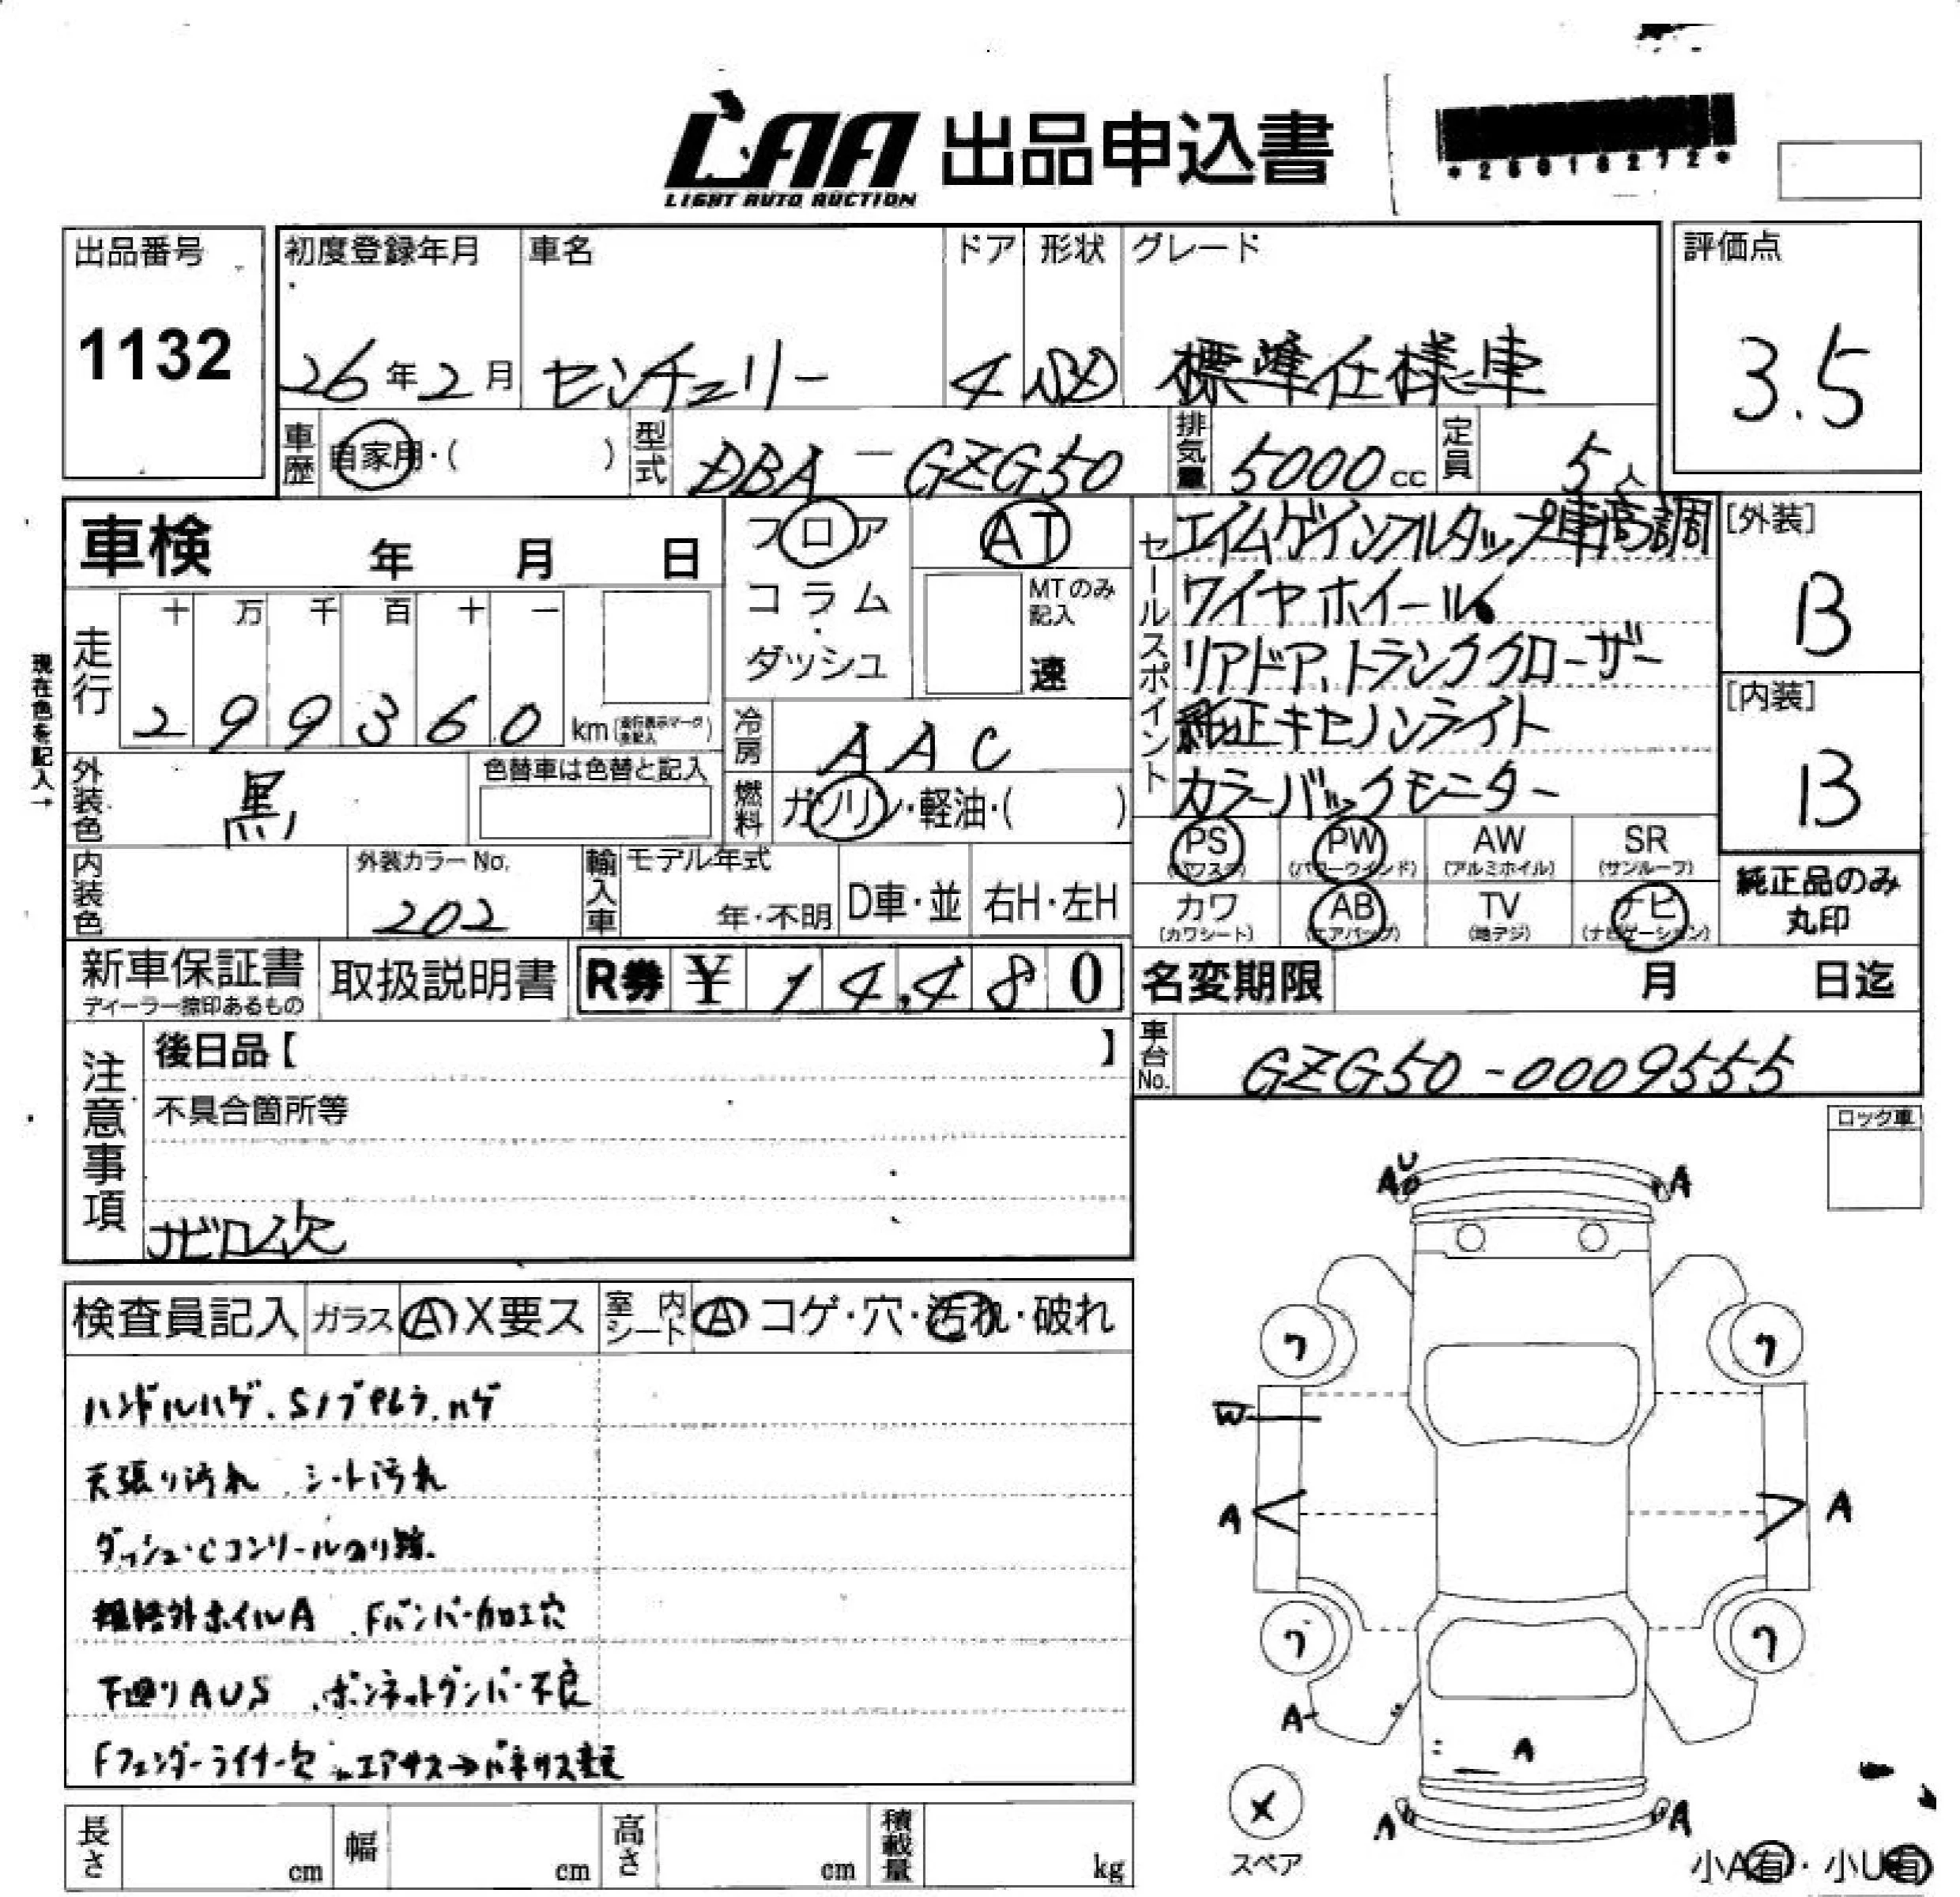 LAA 出品申込書
LIGHT AUTO AUCTION
*26018272*
出品番号
1132
初度登録年月
26年2月
車名
センチュリー
ドア
4
形状
SD
グレード
標準仕様車
評価点
3.5
車歴
自家用・( )
型式
DBA-GZG50
排気量
5000cc
定員
5人
車検 年 月 日
フロア
コラム
・
ダッシュ
AT
MTのみ記入
速
セールスポイント
エイムゲインフルタップ車高調
ワイヤホイール
リアドア、トランククローザー
純正キセノンライト
カラーバックモニター
[外装]
B
[内装]
B
現在色を記入→
走行
十 万 千 百 十 一
2 9 9 3 6 0 km
冷房
AAC
外装色
黒
色替車は色替と記入
燃料
ガソリン・軽油・( )
PS (パワステ)
PW (パワーウインド)
AW (アルミホイル)
SR (サンルーフ)
カワ (カワシート)
AB (エアバッグ)
TV (地デジ)
ナビ (ナビゲーション)
純正品のみ
丸印
内装色
外装カラーNo.
202
輸入車
モデル年式
年・不明
D車・並
右H・左H
新車保証書
ディーラー捺印あるもの
取扱説明書
R券 ¥ 14,480
名変期限 月 日迄
車台No.
GZG50-0009555
注意事項
後日品【 】
不具合箇所等
ナビロム欠
ロック車
検査員記入
ガラス A X要ス
室内シート A コゲ・穴・汚れ・破れ
ハンドルハゲ.Sノブ ハゲ
天張り汚れ シート汚れ
ダッシュ・Cコンソールのり跡.
外ホイルA Fバンパー加工穴
下廻りAUS ボンネットダンパー不良
Fフェンダーライナー欠 エアサス→バネサス変更
A U A
ワ ワ
W
A A
ワ ワ
A
A
A A
X
スペア
小A有・小U有
長さ cm
幅 cm
高さ cm
積載量 kg